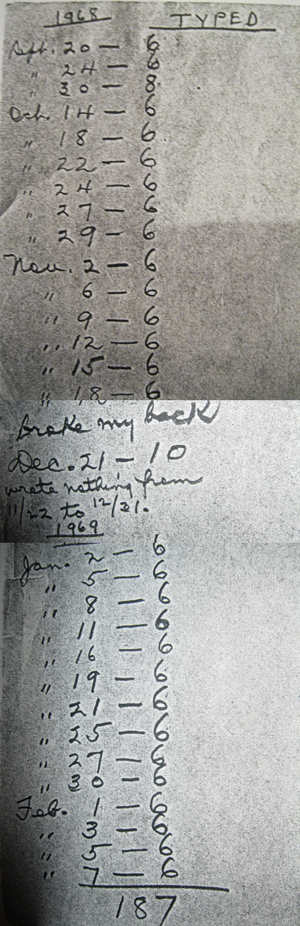 1968 TYPED
Sept. 20 — 6
" 24 — 6
" 30 — 8
Oct. 14 — 6
" 18 — 6
" 22 — 6
" 24 — 6
" 27 — 6
" 29 — 6
Nov. 2 — 6
" 6 — 6
" 9 — 6
" 12 — 6
" 15 — 6
" 18 — 6
Broke my back
Dec. 21 — 10
wrote nothing from
11/22 to 12/21.
1969
Jan. 2 — 6
" 5 — 6
" 8 — 6
" 11 — 6
" 16 — 6
" 19 — 6
" 21 — 6
" 25 — 6
" 27 — 6
" 30 — 6
Feb. 1 — 6
" 3 — 6
" 5 — 6
" 7 — 6
187